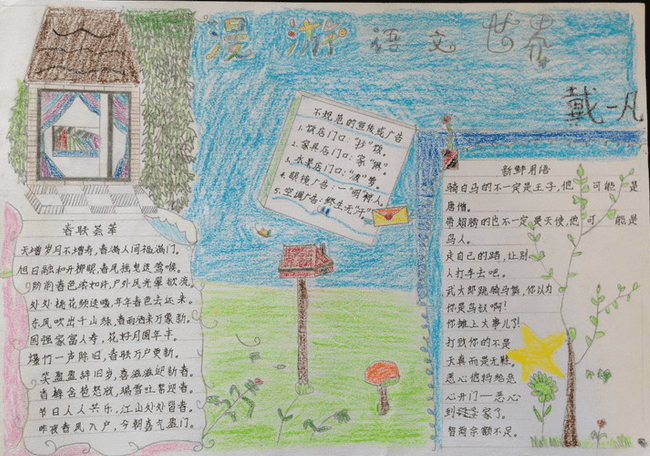 漫游语文世界
戴一凡
不规范的宣传或广告
1.饭店门口："抄"饭。
2.家具店门口：家"俱"。
3.水果店门口："波"萝。
4.眼镜广告：一"明"惊人。
5.空调广告：终生无"汗"
春联荟萃
天增岁月人增寿，春满人间福满门。
旭日融和开柳眼，春风拂
阶前春色浓如许，户外风光翠欲流。
处处桃花频送暖，年年春色去还来。
东风吹出千山绿，春雨洒来万象新。
国强家富人寿，花好月圆年丰。
爆竹一声除旧，春联万户更新。
笑盈盈辞旧岁，喜滋滋迎新春。
春梅含苞怒放，瑞雪吐絮迎春。
节日人人共乐，江山处处皆春。
昨夜春风入户，今朝喜气盈门。
新鲜用语
骑白马的不一定是王子，他 可能是
唐僧。
带翅膀的也不一定是天使，他可 能是
鸟人。
走自己的路，让别
人打车去吧。
武大郎跪骑马熊，你以为
你是鸟
你摊上大事儿了！
打败你的不是
天真而是无鞋。
恶心他妈给恶
心开门—恶心
到家了。
智商余额不足。